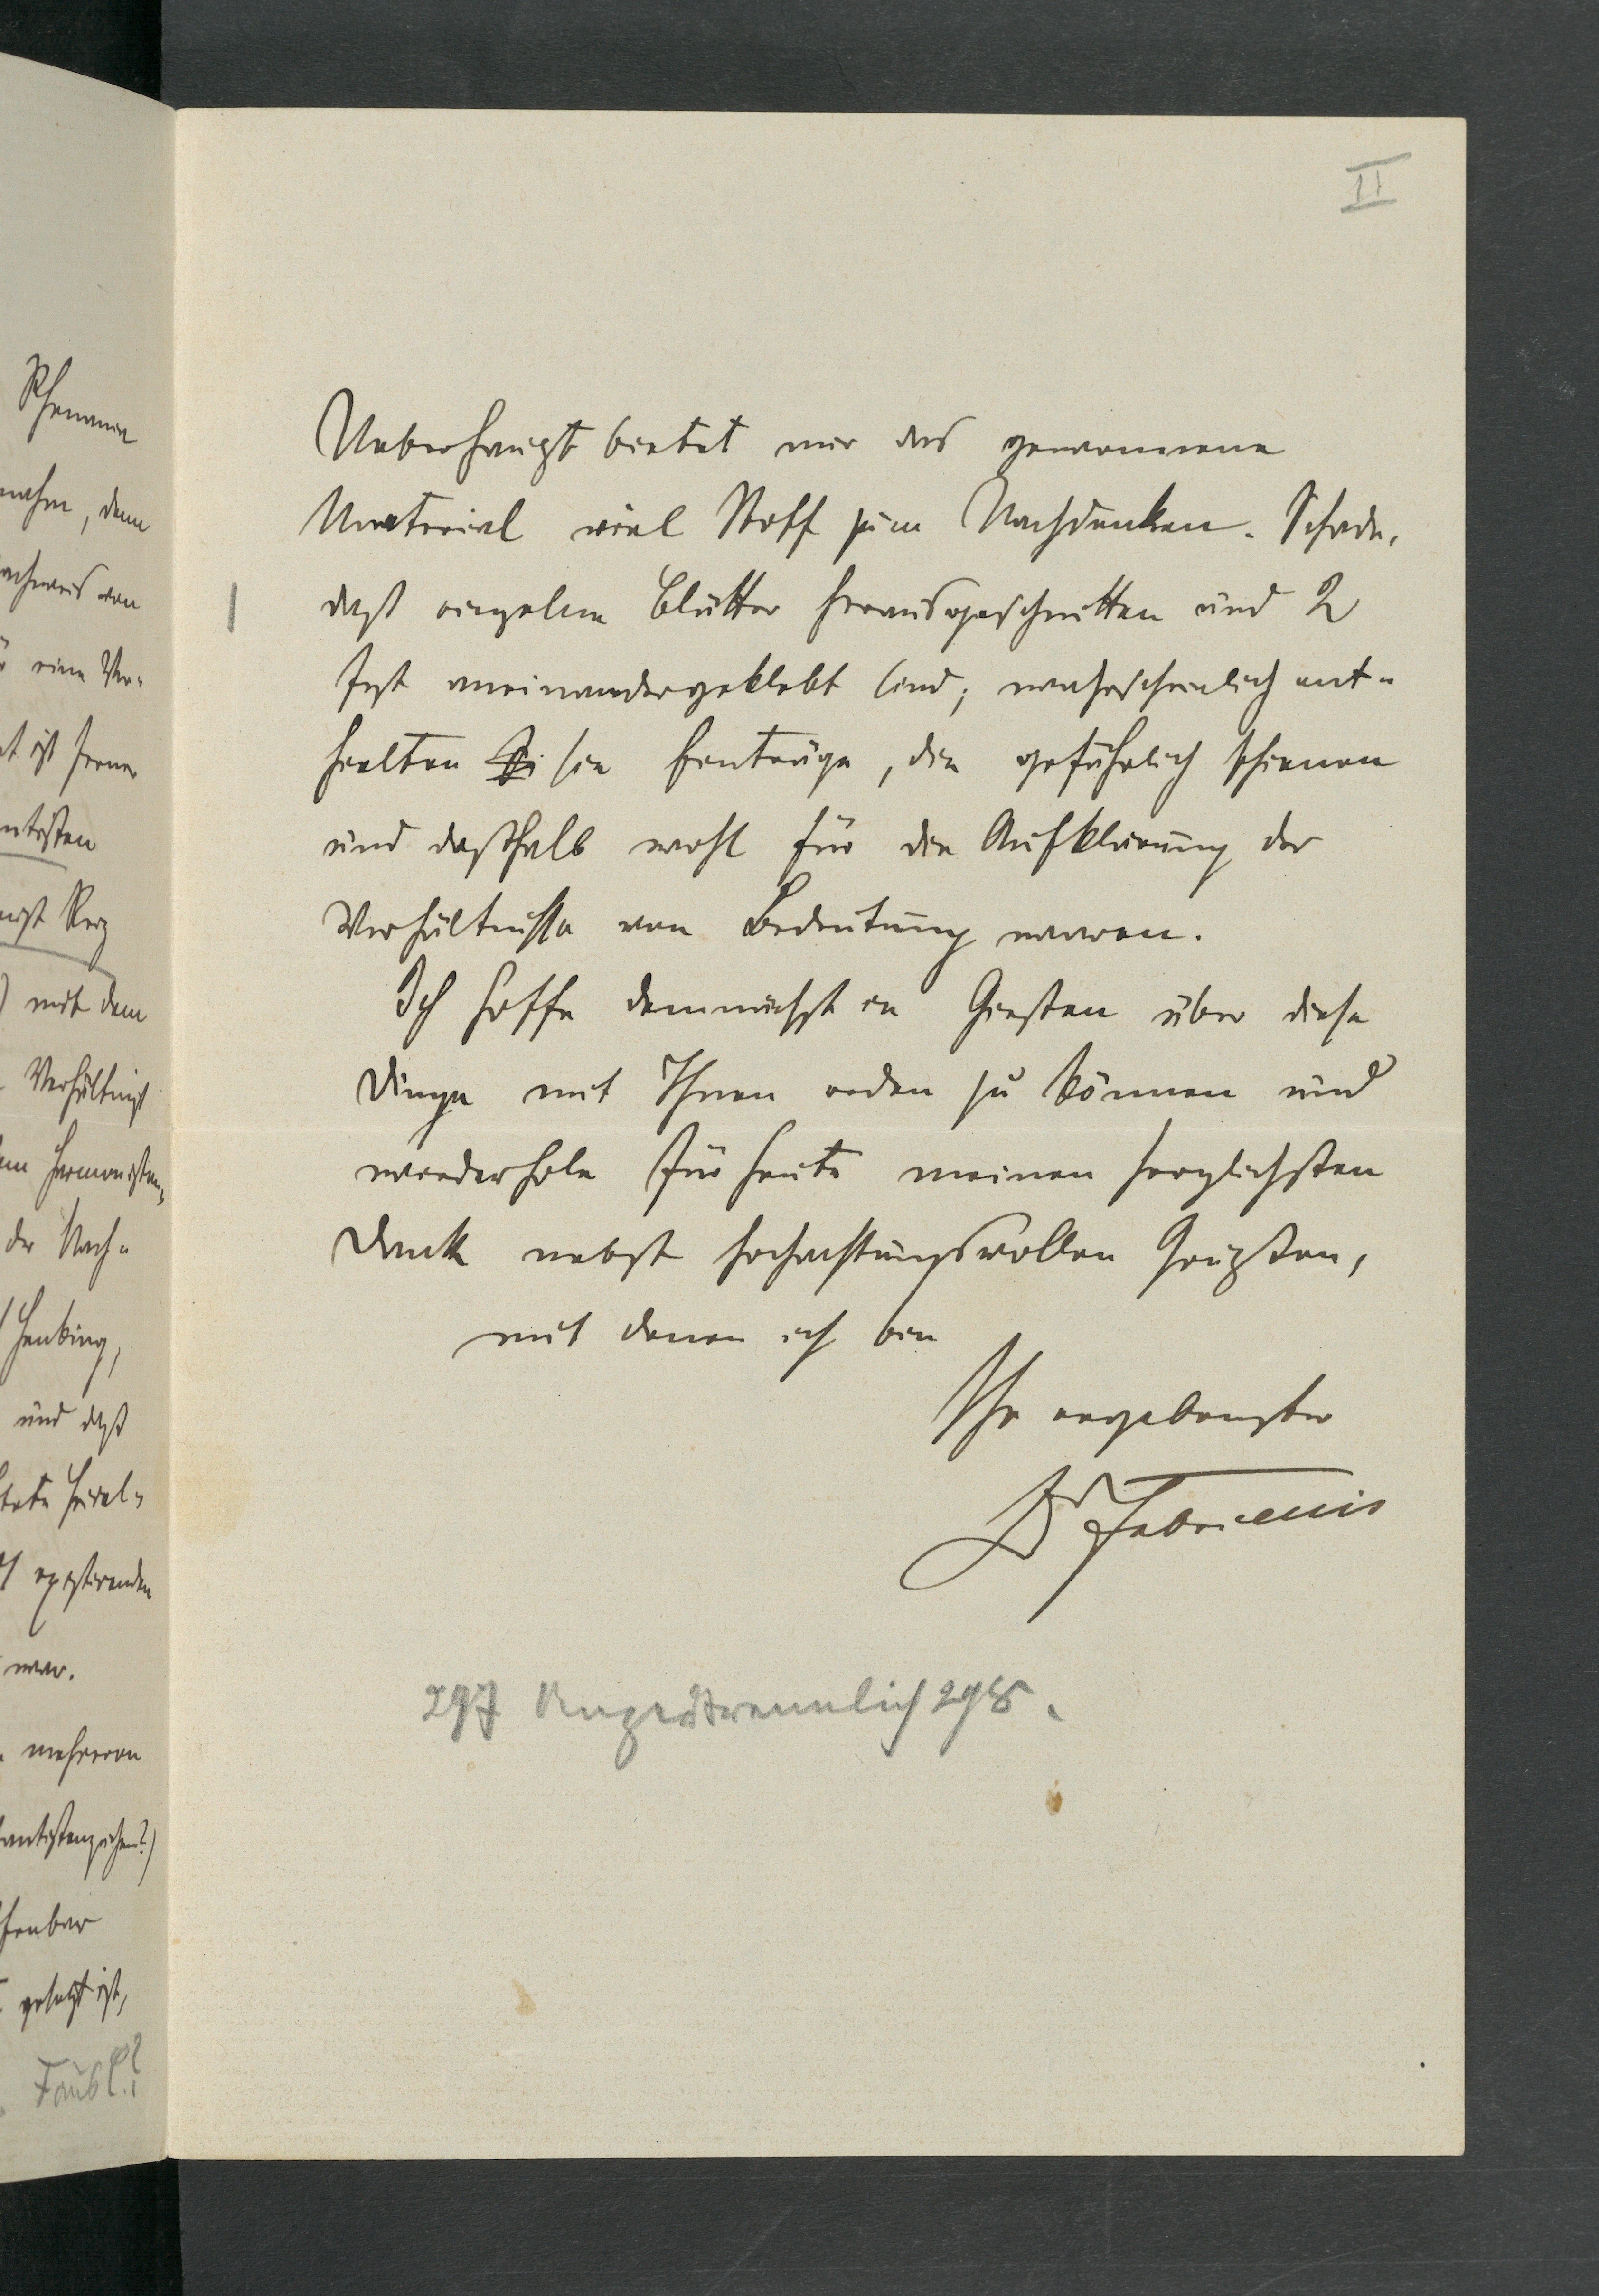 II
Ueberhaupt bietet mir das gewonnene
Material viel Stoff zum Nachdenken. Schade,
daß einzelne Blätter herausgeschnitten und 2
fest aneinandergeklebt sind; wahrscheinlich ent-
hielten sie Einträge, die gefährlich schienen
und deßhalb wohl für die Aufklärung der
Verhältnisse von Bedeutung waren.
Ich hoffe demnächst in Gießen über diese
Dinge mit Ihnen reden zu können und
wiederhole für heute meinen herzlichsten
Dank nebst hochachtungsvollen Grüßen,
mit denen ich bin
Ihr ergebenster
Dr Fabricius
297 298.
Rhenania
nahm, denn
von
eine Ver-
ist ferner
mit dem
Verhältniß
der Nach-
und daß
war.
mehreren
gesetzt ist,